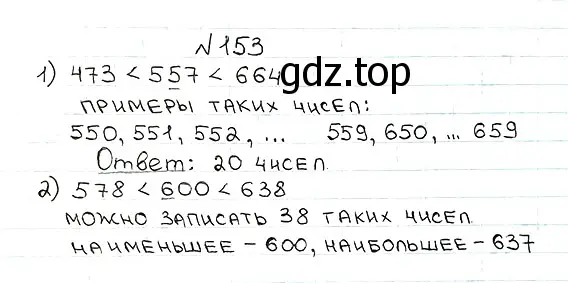 №153
1) 473 < 557 < 664
gdz.top
ПРИМЕРЫ ТАКИХ ЧИСЕЛ:
550, 551, 552, ... 559, 650, ... 659
Ответ: 20 ЧИСЕЛ
2) 578 < 600 < 638
МОЖНО ЗАПИСАТЬ 38 ТАКИХ ЧИСЕЛ
НАИМЕНЬШЕЕ - 600, НАИБОЛЬШЕЕ - 637